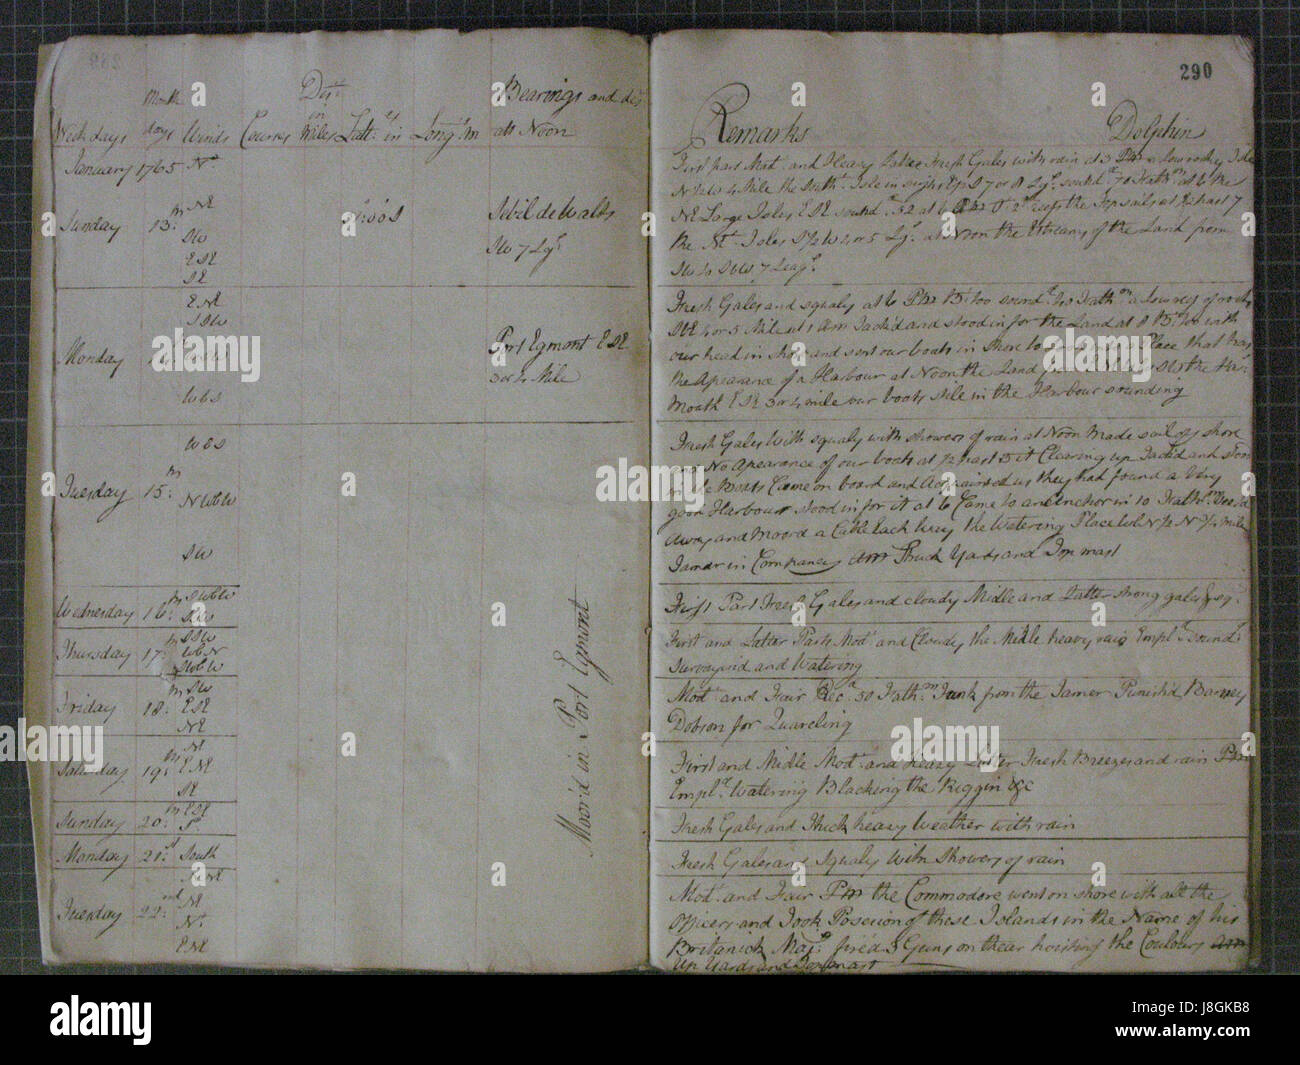 290
Month Dist. Bearings and dis
Week days days Winds Courses in Miles Latt. in Long. In att Noon
January 1765 Nt
Sunday 13: NE SW ESE SE Sebil de Walds
SW 7 Lgs
Monday ENE SSW WbS Port Egmont ESE
3 or 4 Mile
Tuesday 15: WbS NWbW SW
Wednesday 16: SWbW SSW
Thursday 17: SSW WbN SWbW
Friday 18: SW ESE NE
Saturday 19: Nt ENE SE
Sunday 20: ESE
Monday 21: South
Tuesday 22: N Nt ENE
Moor'd in Port Egmont
Remarks Dolphin
First part Modt. and Heavy Latter Fresh Gales with rain at 3 PM a low rocky Isle
the Topsails at past 7
the Nt. Isles or 5 Lgs. at Noon the Extreams of the Land from
7 Leags.
Fresh Gales and squaly at 6 PM Sound 40 Fathm. a low rey of rocks
or 5 Mile at 1 AM Tack'd and stood in for the Land at 8 with
our head in shore and sent our boats in Shore to Place that has
the Apearance of a Harbour at Noon the Land from the Har
Mouth ESE 3 or 4 mile our boats still in the Harbour sounding
Fresh Gales With squaly with showers of rain at Noon Made sail of shore
No Apearance of our boats at 1/2 past Clearing up Tack'd and stood
in the Boats Came on board and Acquainted us they had found a Very
good Harbour stood in for it at 6 Came to an Anchor in 10 Fathm.
Away and Moor'd a Cable Each Way the Watering Place WbN 1/2 N 3/4 mile
Tamer in Company AM Struck Yards and Top mast
First Part Fresh Gales and cloudy Midle and Latter strong gales & sq.
First and Latter Parts Modt. and Cloudy the Midle heavy rain Empl.
and Watering
Modt. and Fair Recd. 50 Fathm. Junk from the Tamer Punish'd Barney
Dobson for Quareling
First and Midle Modt. and heazy Latter Fresh Breezes and rain PM
Empl. Watering Blacking the Riggin &c
Fresh Gales and Thick heavy Weather with rain
Fresh Gales and Squaly With Showers of rain
Modt. and Fair PM the Commodore went on shore with all the
Officers and Took Posecion of these Islands in the Name of his
Britanick Maj. fired Guns on thear hoisting the Coulours AM
Up Yards and Topmast
a alamy
alamy
Image ID: J8GKB8
www.alamy.com